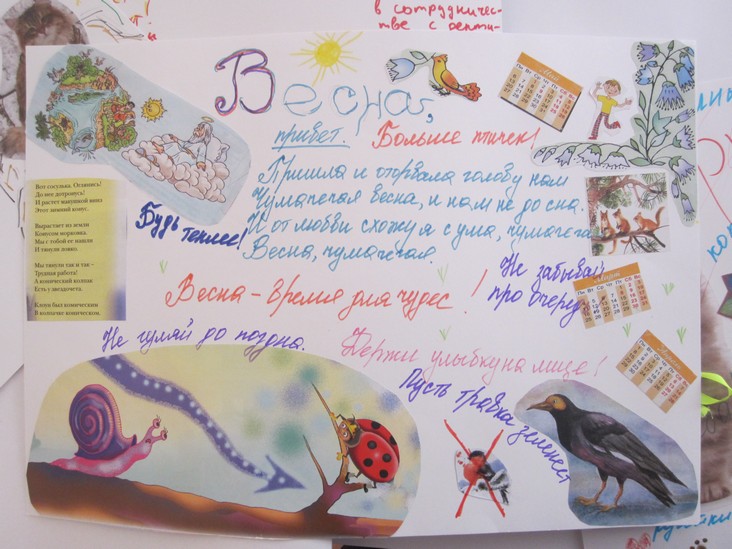 в сотрудничес-
тве с репти-
Весна,
привет.
Больше птичек!
Пришла и оторвала голову нам
Чумачечая весна, и нам не до сна.
И от любви схожу я с ума, чумачечая
Весна, чумачечая.
Будь теплее!
Вот сосулька. Оглянись!
До нее дотронусь!
И растет макушкой вниз
Этот зимний конус.
Вырастает из земли
Конусом морковка.
Мы с тобой ее нашли
И тянули ловко.
Мы тянули так и так –
Трудная работа!
А конический колпак
Есть у звездочета.
Клоун был коническим
В колпачке комическом.
Весна - время для чудес!
Не забывай
про очередь
Не гуляй до поздна.
Держи улыбку на лице!
Пусть травка зеленеет
Май
Март